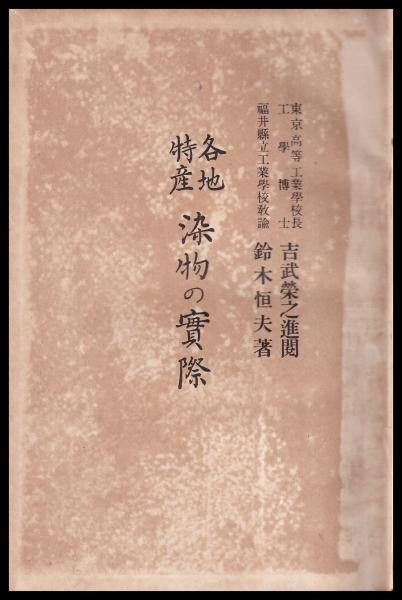 東京高等工業學校長
工學博士
吉武榮之進閱
福井縣立工業學校敎諭
鈴木恒夫著
各地
特産
染物の實際